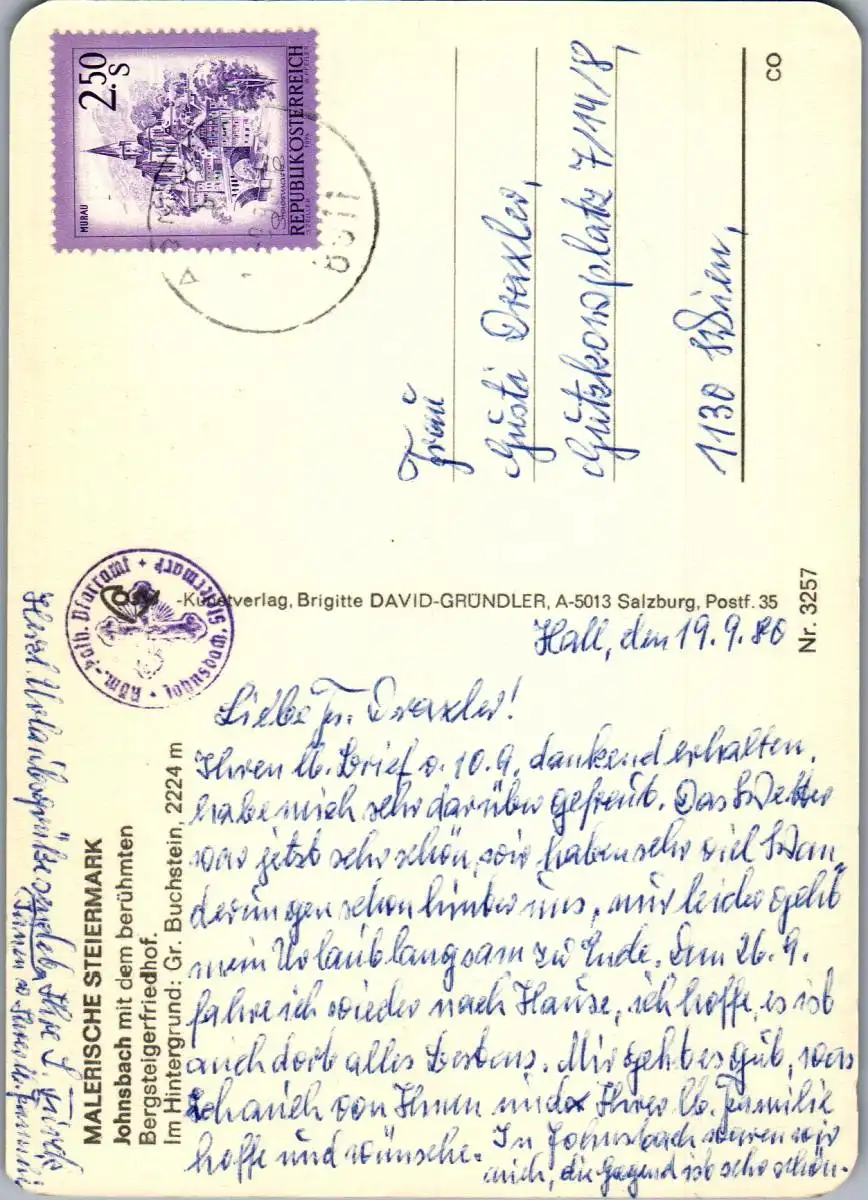 MALERISCHE STEIERMARK
Johnsbach mit dem berühmten
Bergsteigerfriedhof.
Im Hintergrund: Gr. Buchstein, 2224 m
-Kunstverlag, Brigitte DAVID-GRÜNDLER, A-5013 Salzburg, Postf. 35
Nr. 3257
CO
2.50 S
REPUBLIK ÖSTERREICH
MURAU
8911
Röm.-kath. Pfarramt
Johnsbach, Steiermark
Frau
Gusti Draxler,
Gutzkowplatz 7/14/8,
1130 Wien,
Hall, den 19.9.80
Liebe Fr. Draxler!
Ihren lb. Brief v. 10.9. dankend erhalten,
habe mich sehr darüber gefreut. Das Wetter
war jetzt sehr schön, wir haben sehr viel Wan-
derungen schon hinter uns, nur leider geht
mein Urlaub langsam zu Ende. Am 26.9.
fahre ich wieder nach Hause, ich hoffe, es ist
auch dort alles Bestens. Mir geht es gut, was
ich auch von Ihnen und Ihrer lb. Familie
hoffe und wünsche. In Johnsbach waren wir
auch, die Gegend ist sehr schön.
Herzl. Urlaubsgrüße sendet Ihre